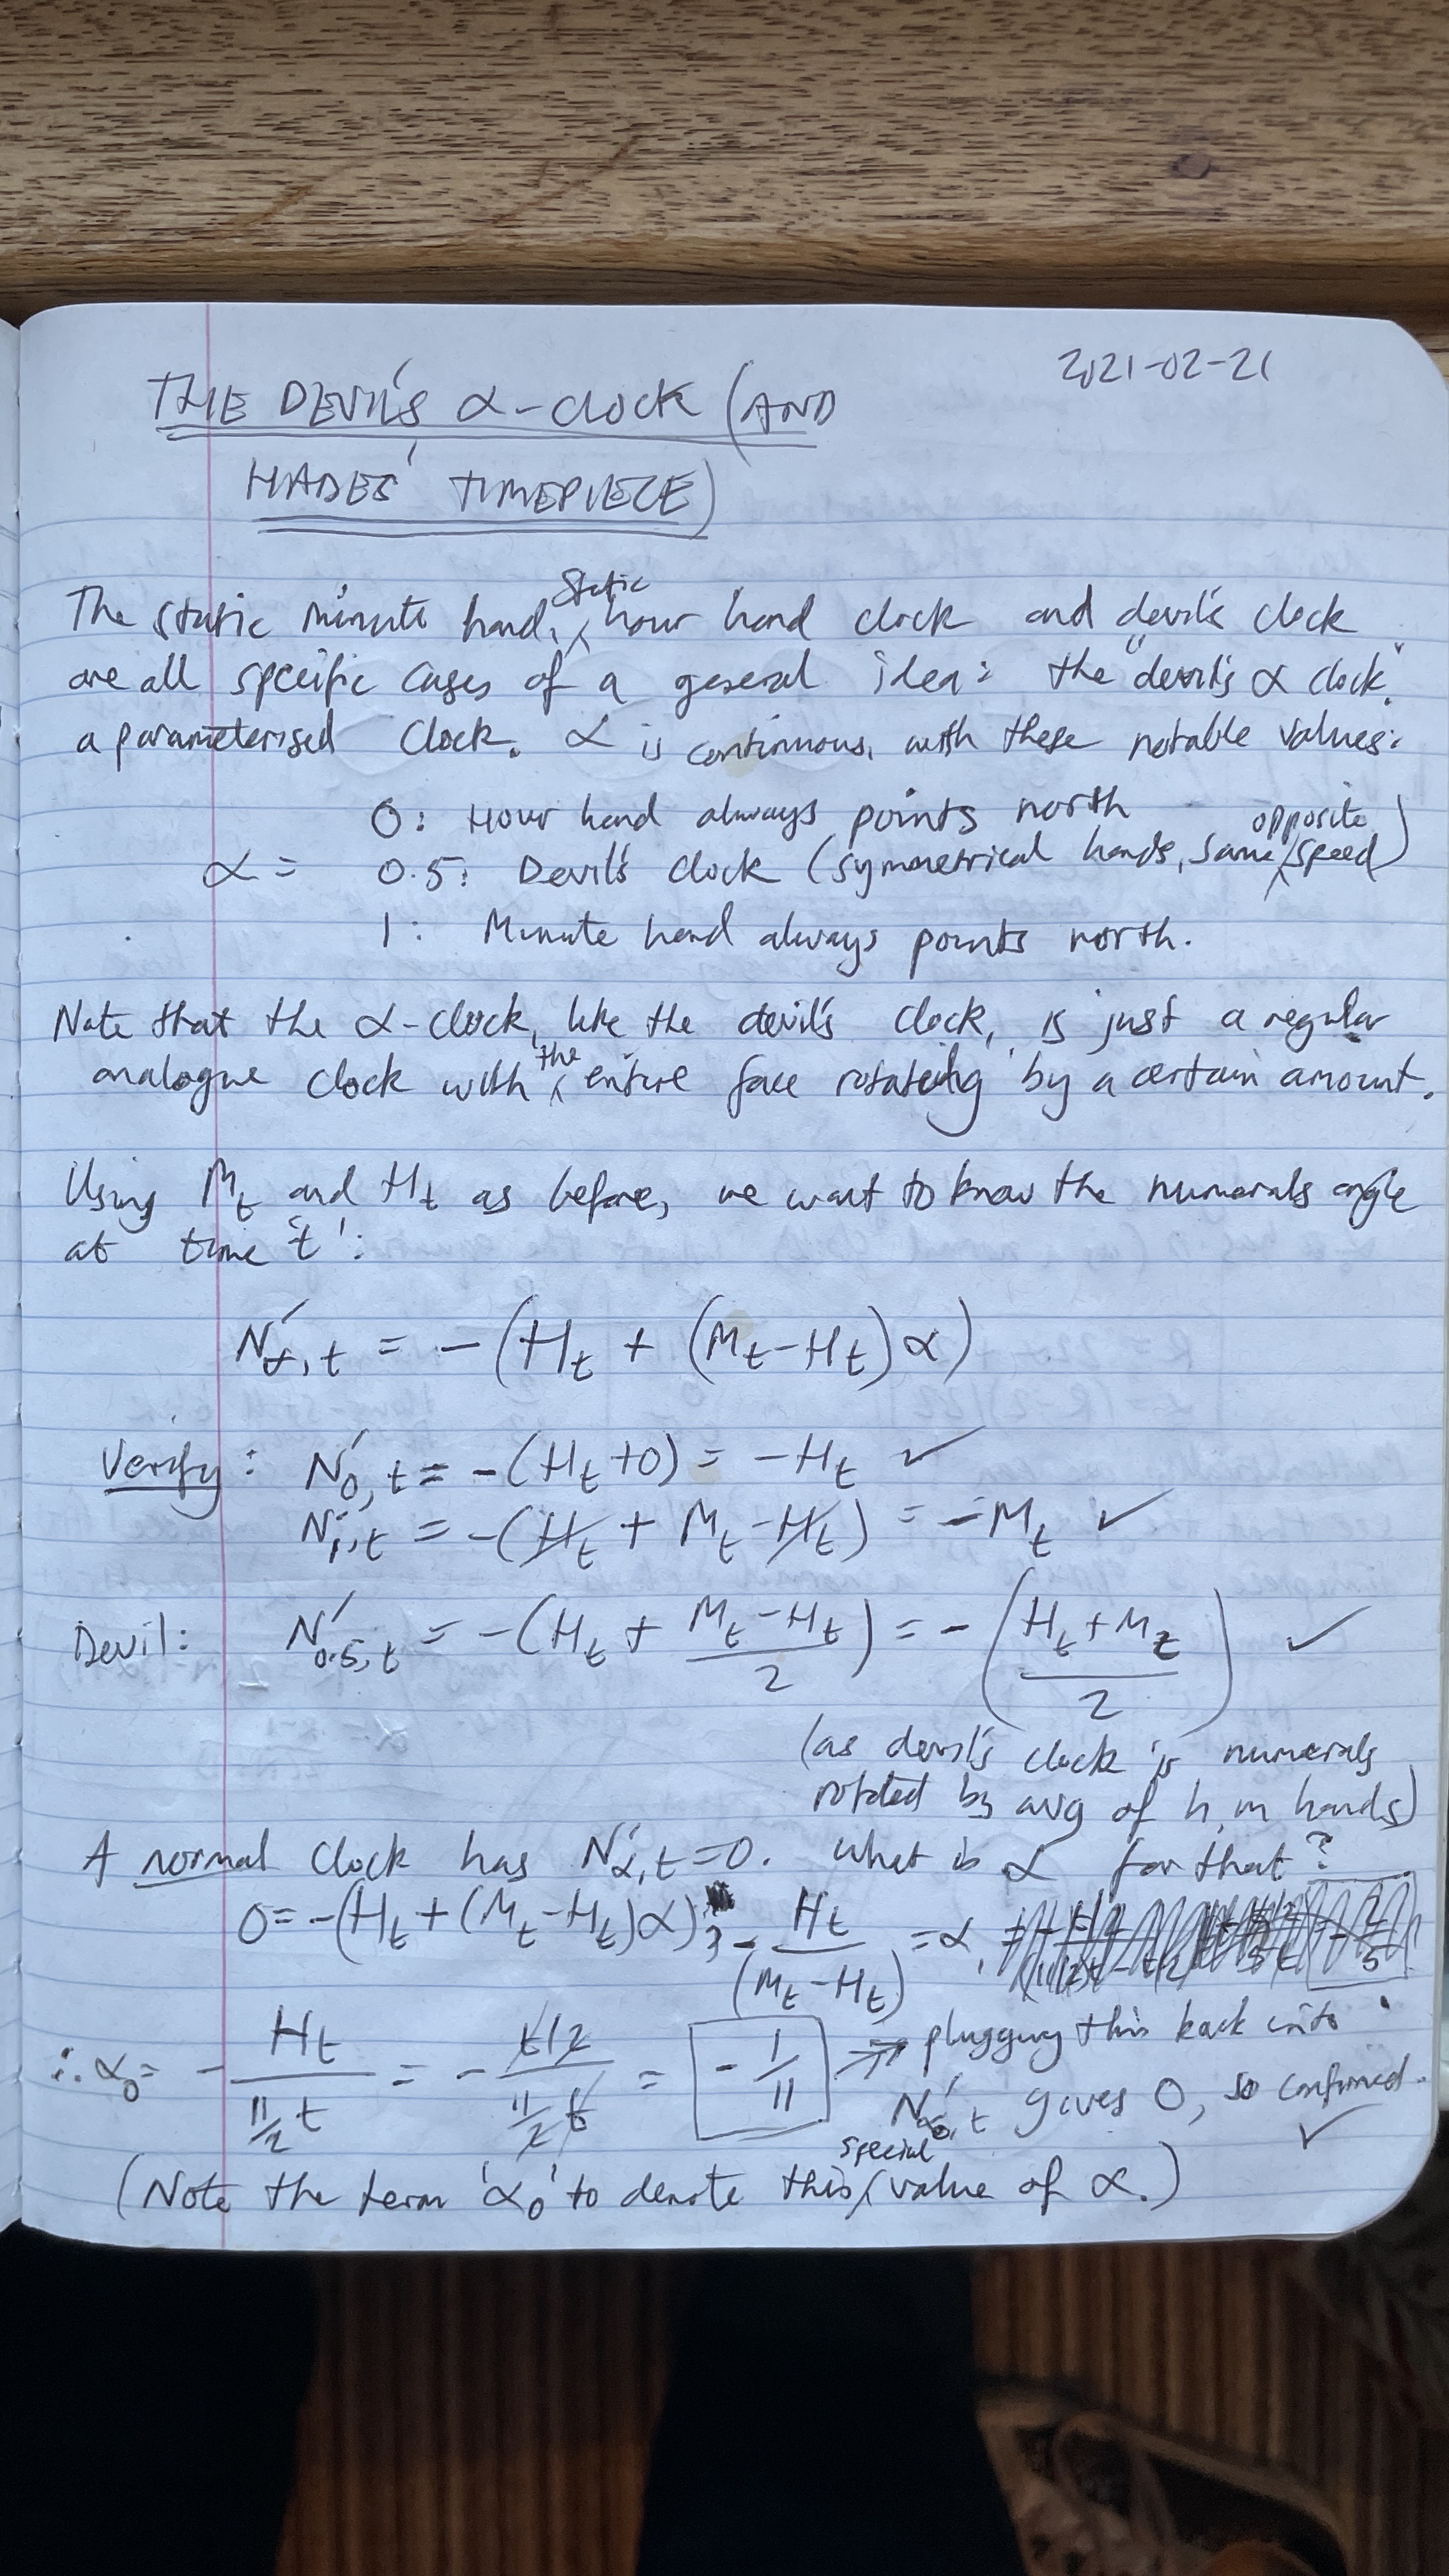 2021-02-21
THE DEVIL'S α-clock (AND
HADES' TIMEPIECE)
The static minute hand, static hour hand clock and devil's clock
are all specific cases of a general idea: the "devil's α clock",
a parameterised clock. α is continuous, with these notable values:
0: Hour hand always points north
α = 0.5: Devil's clock (symmetrical hands, same opposite speed)
1: Minute hand always points north.
Note that the α-clock, like the devil's clock, is just a regular
analogue clock with the entire face rotating by a certain amount.
Using Mt and Ht as before, we want to know the numerals angle
at time 't':
N'α,t = -(Ht + (Mt-Ht)α)
Verify: N'0,t = -(Ht+0) = -Ht ✓
N'1,t = -(Ht + Mt-Ht) = -Mt ✓
Devil: N'0.5,t = -(Ht + (Mt-Ht)/2) = -((Ht+Mt)/2) ✓
(as devil's clock is numerals
rotated by avg of h, m hands)
A normal clock has N'α,t=0. What is α for that?
0=-(Ht+(Mt-Ht)α); -Ht/(Mt-Ht) =α,
∴ α0= -Ht/(11/2 t) = -(t/2)/(11/2 t) = -1/11 → plugging this back into
N'α0,t gives 0, so confirmed. ✓
(Note the term 'α0' to denote this special value of α.)